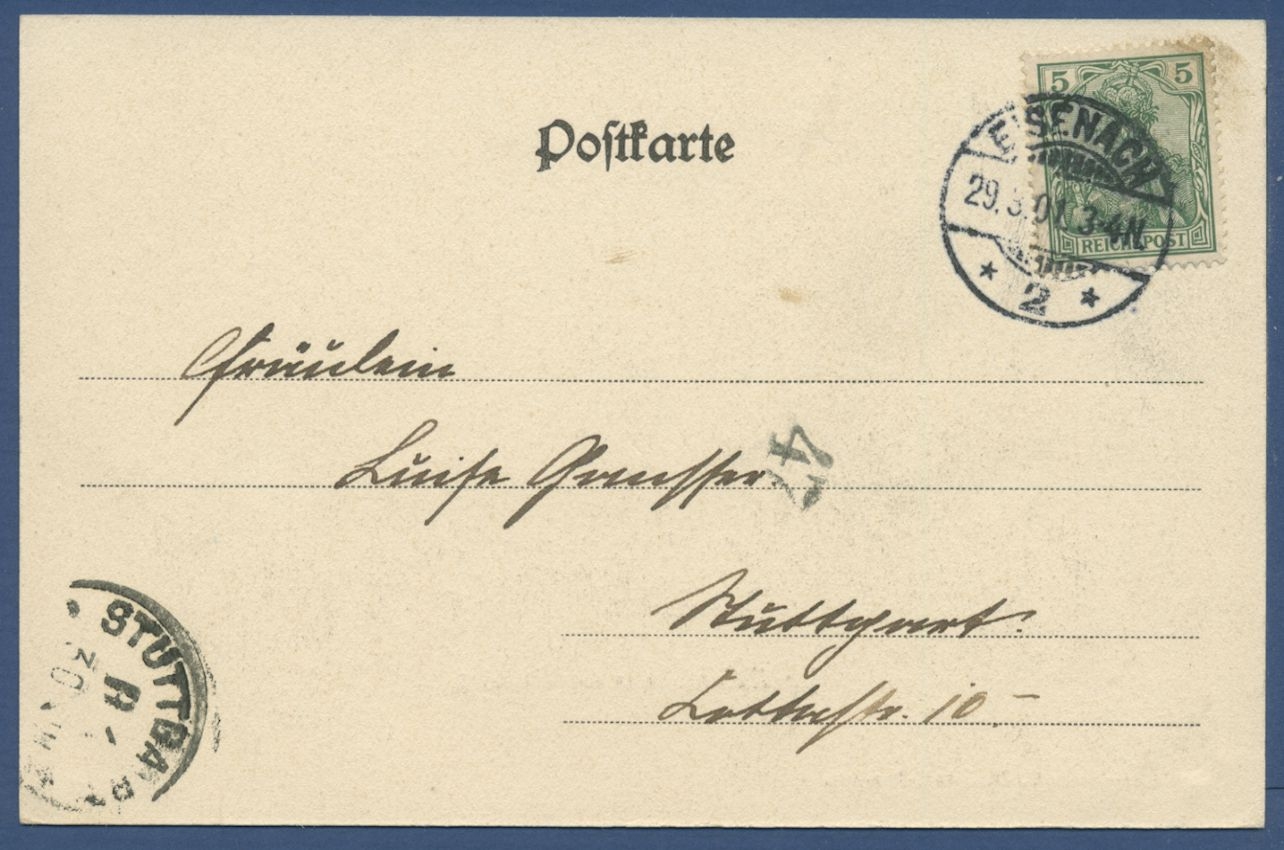 Postkarte
5 5
REICHSPOST
EISENACH
29.3.01. 3-4N.
* 2 *
Fräulein
Luise
47
Stuttgart.
10
STUTTGART